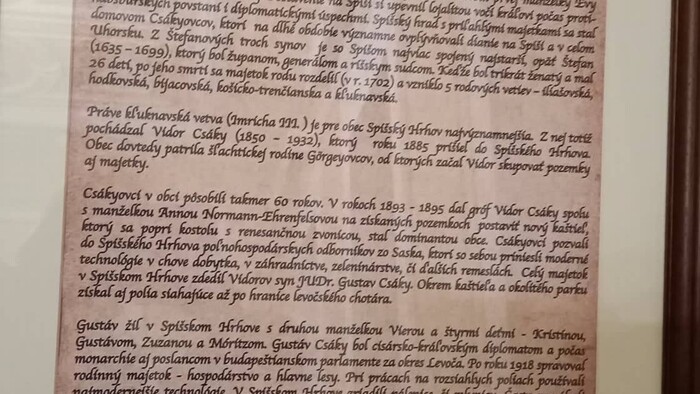 na Spiši si upevnil lojalitou voči kráľovi počas proti-
habsburských povstaní i diplomatickými úspechmi. Spišský hrad s priľahlými majetkami sa stal
domovom Csákyovcov, ktorí na dlhé obdobie významne ovplyvňovali dianie na Spiši a v celom
Uhorsku. Z Štefanových troch synov je so Spišom najviac spojený najstarší, opäť Štefan
(1635 - 1699), ktorý bol županom, generálom a ríšskym sudcom. Keďže bol trikrát ženatý a mal
26 detí, po jeho smrti sa majetok rodu rozdelil (v r. 1702) a vzniklo 5 rodových vetiev - iliašovská,
hodkovská, bijacovská, košicko-trenčianska a kľuknavská.
Práve kľuknavská vetva (Imricha III.) je pre obec Spišský Hrhov najvýznamnejšia. Z nej totiž
pochádzal Vidor Csáky (1850 - 1932), ktorý roku 1885 prišiel do Spišského Hrhova.
Obec dovtedy patrila šľachtickej rodine Görgeyovcov, od ktorých začal Vidor skupovať pozemky
aj majetky.
Csákyovci v obci pôsobili takmer 60 rokov. V rokoch 1893 - 1895 dal gróf Vidor Csáky spolu
s manželkou Annou Normann-Ehrenfelsovou na získaných pozemkoch postaviť nový kaštieľ,
ktorý sa popri kostolu s renesančnou zvonicou, stal dominantou obce. Csákyovci pozvali
do Spišského Hrhova poľnohospodárskych odborníkov zo Saska, ktorí so sebou priniesli moderné
technológie v chove dobytka, v záhradníctve, zeleninárstve, či ďalších remeslách. Celý majetok
v Spišskom Hrhove zdedil Vidorov syn JUDr. Gustav Csáky. Okrem kaštieľa a okolitého parku
získal aj polia siahajúce až po hranice levočského chotára.
Gustáv žil v Spišskom Hrhove s druhou manželkou Vierou a štyrmi deťmi - Kristínou,
Gustávom, Zuzanou a Móritzom. Gustáv Csáky bol cisársko-kráľovským diplomatom a počas
monarchie aj poslancom v budapeštianskom parlamente za okres Levoča. Po roku 1918 spravoval
rodinný majetok - hospodárstvo a hlavne lesy. Pri prácach na rozsiahlych poliach používali
najmodernejšie technológie. V Spišskom Hrhove